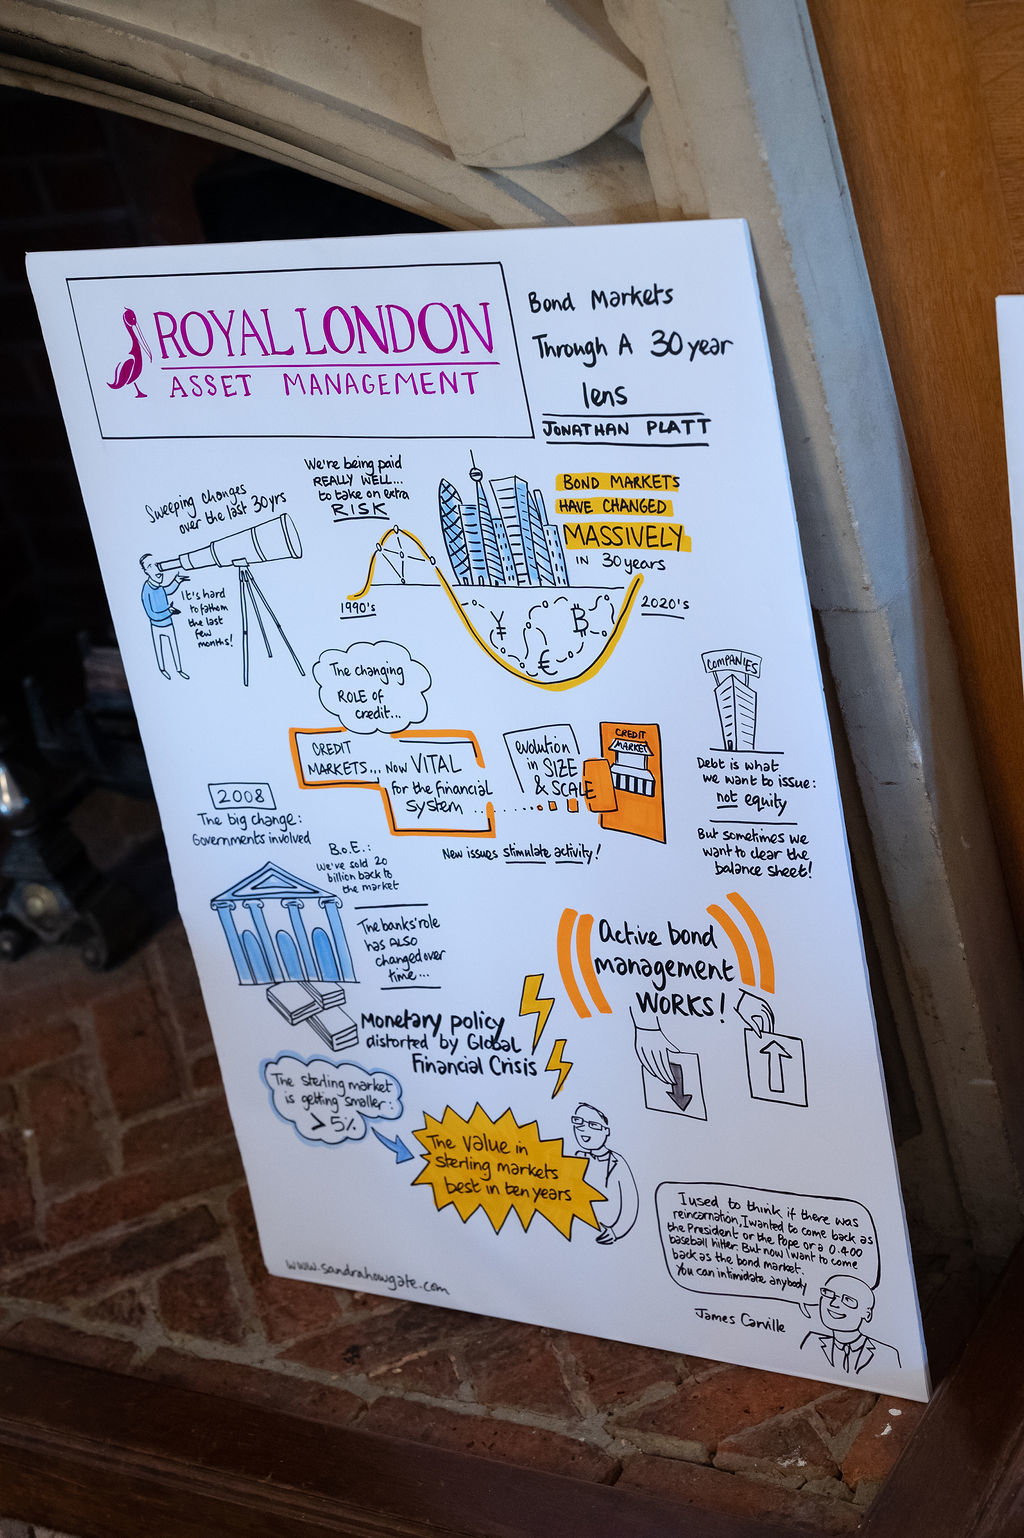 ROYAL LONDON
ASSET MANAGEMENT
Bond Markets
Through A 30 year
lens
JONATHAN PLATT
Sweeping changes
over the last 30 yrs
It's hard
to fathom
the last
few
months!
We're being paid
REALLY WELL...
to take on extra
RISK
BOND MARKETS
HAVE CHANGED
MASSIVELY
IN 30 years
1990's
2020's
¥
€
₿
The changing
ROLE of
credit...
CREDIT
MARKETS...
NOW VITAL
for the financial
system
evolution
in SIZE
& SCALE
CREDIT
MARKET
New issues stimulate activity!
COMPANIES
Debt is what
we want to issue:
not equity
But sometimes we
want to clear the
balance sheet!
2008
The big change:
Governments involved
B.o.E.:
We've sold 20
billion back to
the market
The banks' role
has ALSO
changed over
time...
Monetary policy
distorted by Global
Financial Crisis
Active bond
management
WORKS!
The sterling market
is getting smaller:
> 5%
The value in
sterling markets
best in ten years
I used to think if there was
reincarnation, I wanted to come back as
the President or the Pope or a 0.400
baseball hitter. But now I want to come
back as the bond market.
You can intimidate anybody
James Carville
www.sandrahowgate.com